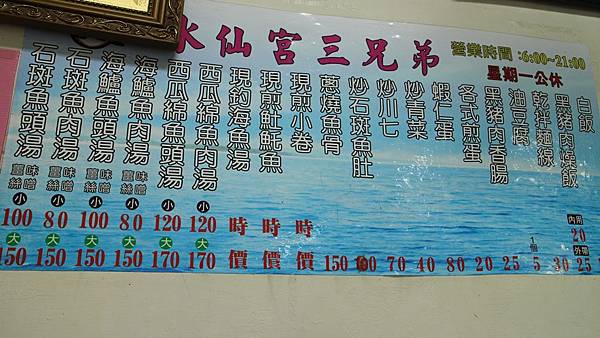 水仙宮三兄弟
營業時間:6:00~21:00
星期一公休
白飯
黑豬肉燥飯 內用 20 外帶 25
乾拌麵線 30
油豆腐 1個 5
黑豬肉香腸 25
各式煎蛋 20
蝦仁蛋 80
炒青菜 40
炒川七 70
炒石斑魚肚
蔥燒魚骨 150
現煎小卷 時價
現煎魠魚 時價
現釣海魚湯 時價
西瓜綿魚肉湯 小 120 大 170
西瓜綿魚頭湯 小 120 大 170
海鱸魚肉湯 味噌 薑絲 小 80 大 150
海鱸魚頭湯 味噌 薑絲 小 100 大 150
石斑魚肉湯 味噌 薑絲 小 80 大 150
石斑魚頭湯 味噌 薑絲 小 100 大 150